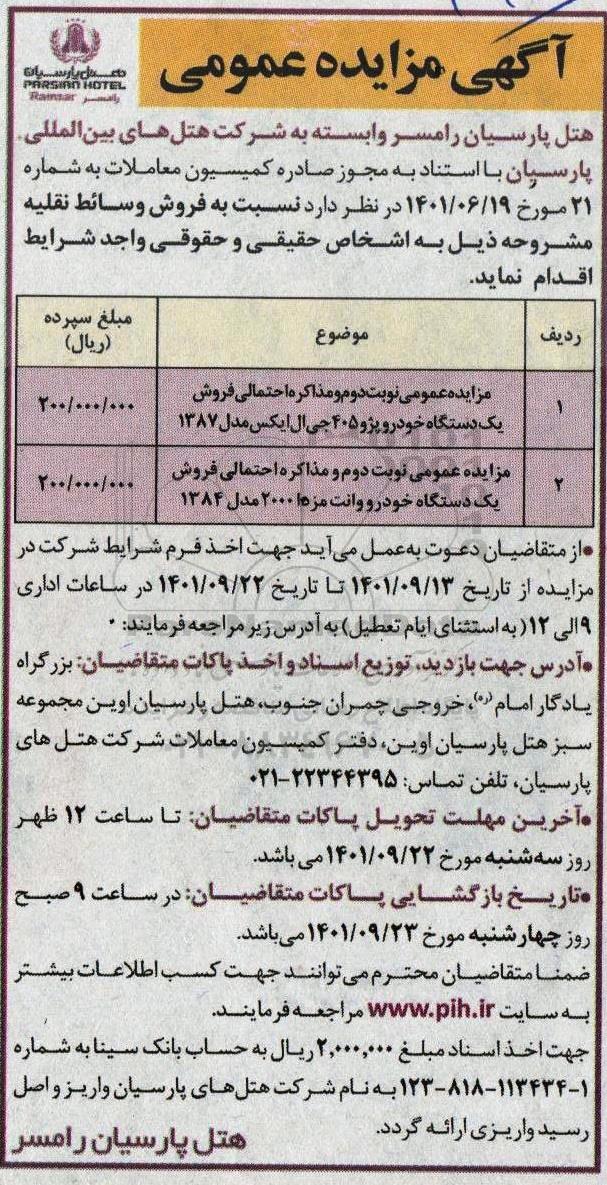 آگهی مزایده عمومی
هتل پارسیان
PARSIAN HOTEL
Ramsar رامسر
هتل پارسیان رامسر وابسته به شرکت هتل‌های بین‌المللی
پارسیان با استناد به مجوز صادره کمیسیون معاملات به شماره
۲۱ مورخ ۱۴۰۱/۰۶/۱۹ در نظر دارد نسبت به فروش وسائط نقلیه
مشروحه ذیل به اشخاص حقیقی و حقوقی واجد شرایط
اقدام نماید.
ردیف موضوع مبلغ سپرده (ریال)
۱ مزایده عمومی نوبت دوم و مذاکره احتمالی فروش ۲۰۰/۰۰۰/۰۰۰
یک دستگاه خودرو پژو ۴۰۵ جی ال ایکس مدل ۱۳۸۷
۲ مزایده عمومی نوبت دوم و مذاکره احتمالی فروش ۲۰۰/۰۰۰/۰۰۰
یک دستگاه خودرو وانت مزدا ۲۰۰۰ مدل ۱۳۸۴
•از متقاضیان دعوت به‌عمل می‌آید جهت اخذ فرم شرایط شرکت در
مزایده از تاریخ ۱۴۰۱/۰۹/۱۳ تا تاریخ ۱۴۰۱/۰۹/۲۲ در ساعات اداری
۹ الی ۱۲ (به استثنای ایام تعطیل) به آدرس زیر مراجعه فرمایند:
•آدرس جهت بازدید، توزیع اسناد و اخذ پاکات متقاضیان: بزرگراه
یادگار امام (ره)، خروجی چمران جنوب، هتل پارسیان اوین مجموعه
سبز هتل پارسیان اوین، دفتر کمیسیون معاملات شرکت هتل های
پارسیان، تلفن تماس: ۲۲۳۴۴۳۹۵-۰۲۱
•آخرین مهلت تحویل پاکات متقاضیان: تا ساعت ۱۲ ظهر
روز سه‌شنبه مورخ ۱۴۰۱/۰۹/۲۲ می باشد.
•تاریخ بازگشایی پاکات متقاضیان: در ساعت ۹ صبح
روز چهارشنبه مورخ ۱۴۰۱/۰۹/۲۳ می‌باشد.
ضمنا متقاضیان محترم می‌توانند جهت کسب اطلاعات بیشتر
به سایت www.pih.ir مراجعه فرمایند.
جهت اخذ اسناد مبلغ ۲,۰۰۰,۰۰۰ ریال به حساب بانک سینا به شماره
۱-۱۱۳۴۳۴-۸۱۸-۱۲۳ به نام شرکت هتل‌های پارسیان واریز و اصل
رسید واریزی ارائه گردد.
هتل پارسیان رامسر